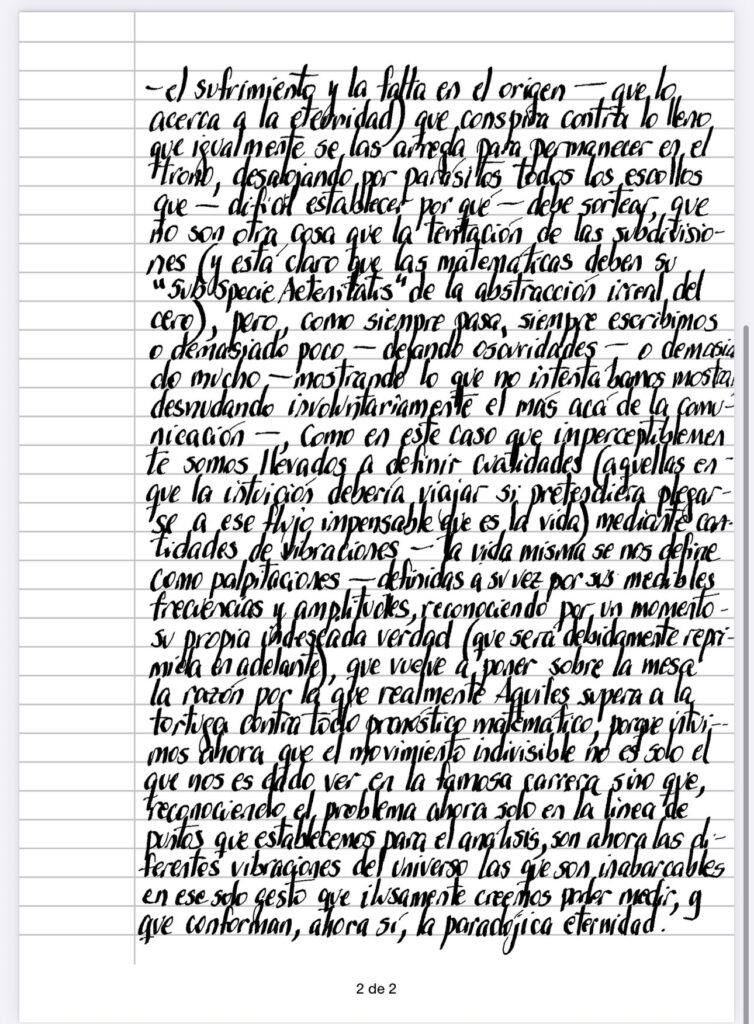 – el sufrimiento y la falta en el origen — que lo
acerca a la eternidad) que conspira contra lo lleno
que igualmente se las arregla para permanecer en el
trono, desalojando por parásitos todos los escollos
que — difícil establecer por qué — debe sortear, que
no son otra cosa que la tentación de las subdivisio-
nes (y está claro que las matemáticas deben su
"Sub Specie Aeternitatis" de la abstracción irreal del
cero), pero, como siempre pasa, siempre escribimos
o demasiado poco — dejando oscuridades — o demasia
do mucho — mostrando lo que no intentábamos mostrar
desnudando involuntariamente el más acá de la comu-
nicación —, Como en este caso que imperceptiblemen
te somos llevados a definir cualidades (aquellas en
que la intuición debería viajar si pretendiera plegar-
se a ese flujo impensable que es la vida) mediante can-
tidades de vibraciones — la vida misma se nos define
como palpitaciones — definidas a su vez por sus medibles
frecuencias y amplitudes, reconociendo por un momento
su propia indeseada verdad (que será debidamente repri-
mida en adelante), que vuelve a poner sobre la mesa
la razón por la que realmente Aquiles supera a la
tortuga contra todo pronóstico matemático, porque intui-
mos ahora que el movimiento indivisible no es solo el
que nos es dado ver en la famosa carrera sino que,
reconociendo el problema ahora solo en la línea de
puntos que establecemos para el análisis, son ahora las di-
ferentes vibraciones del universo las que son inabarcables
en ese solo gesto que ilusamente creemos poder medir, y
que conforman, ahora sí, la paradójica eternidad.
2 de 2